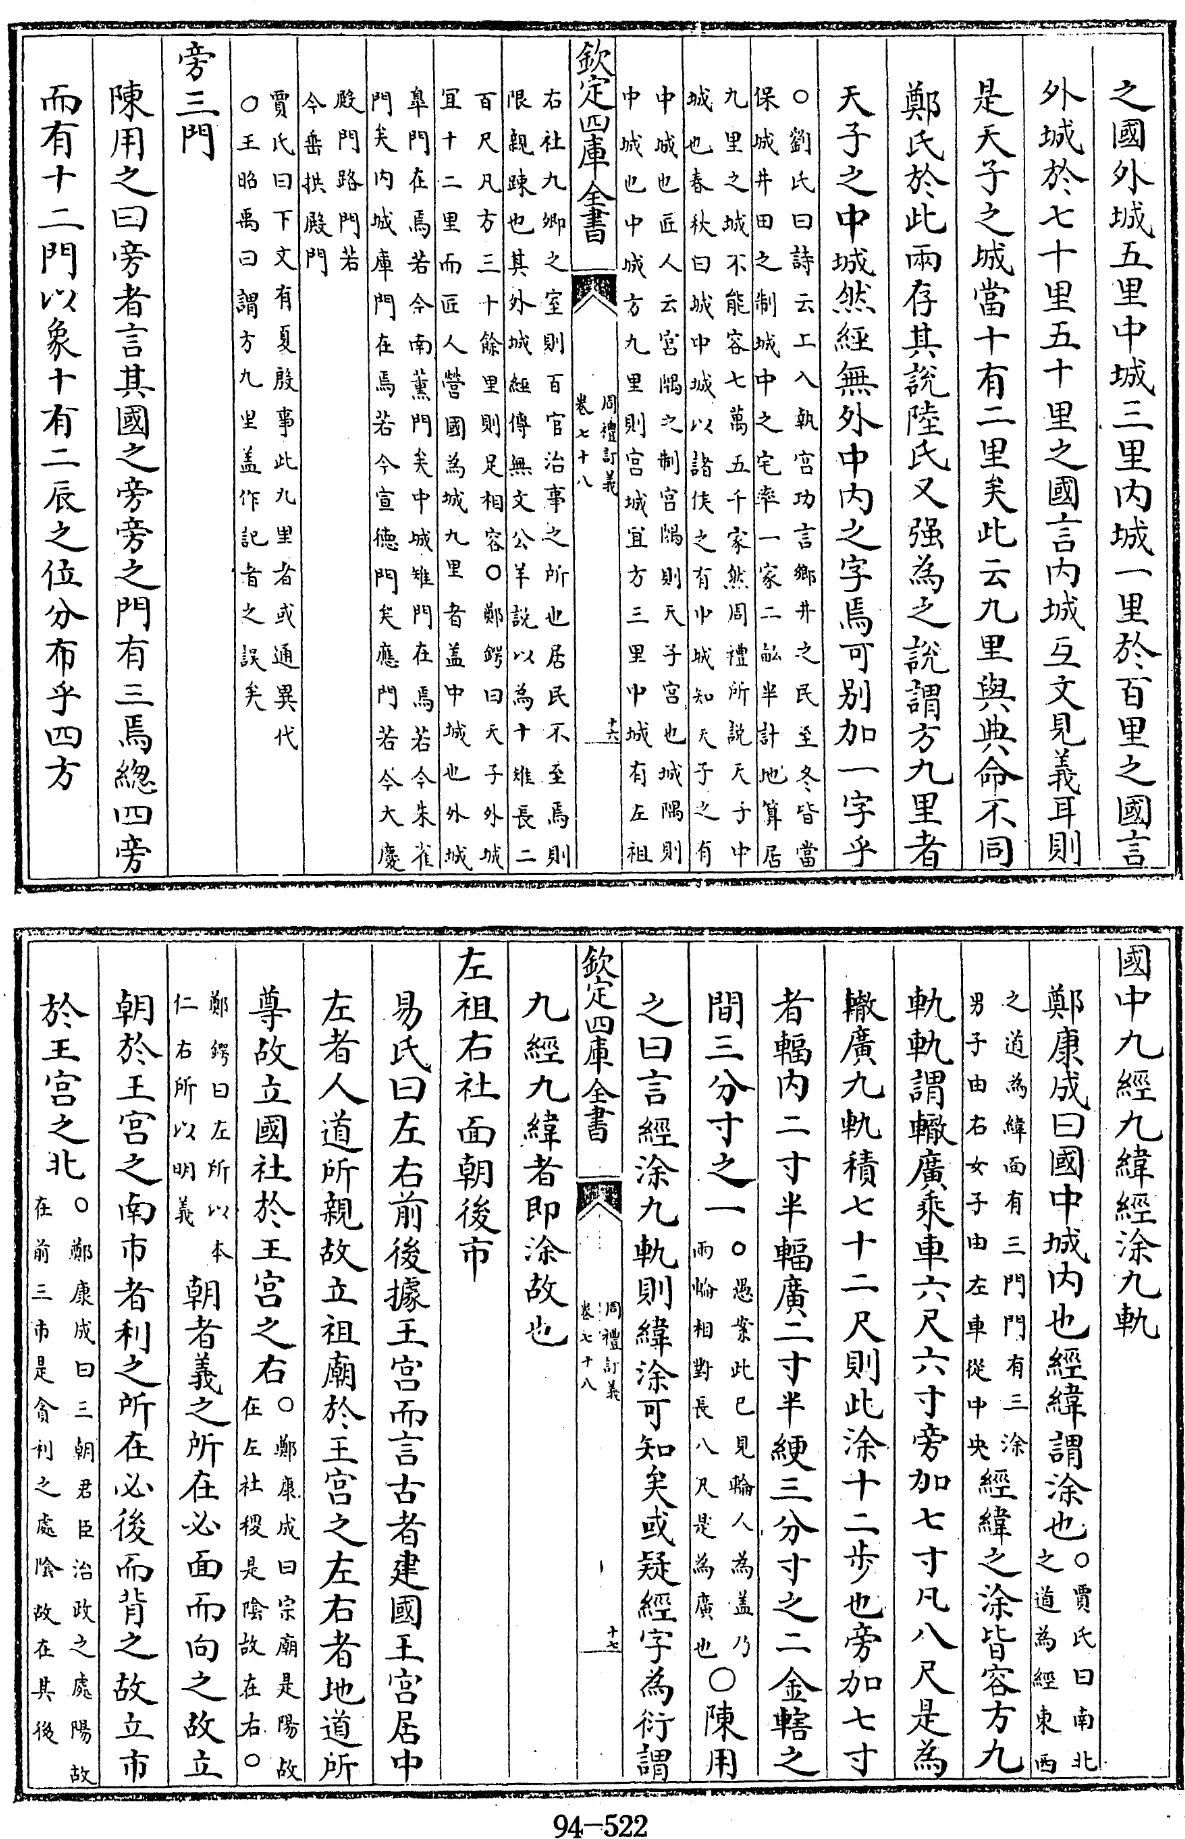 之國外城五里中城三里内城一里於百里之國言
外城於七十里五十里之國言内城互文見義耳則
是天子之城當十有二里矣此云九里與典命不同
鄭氏於此兩存其說陸氏又强為之說謂方九里者
天子之中城然經無外中内之字焉可别加一字乎
○劉氏曰詩云上入執宫功言鄉井之民至冬皆當
保城井田之制城中之宅率一家二畝半計地算居
九里之城不能容七萬五千家然周禮所說天子中
城也春秋曰城中城以諸侯之有中城知天子之有
中城也匠人云宫隅之制宫隅則天子宫也城隅則
中城也中城方九里則宫城宜方三里中城有左祖
欽定四庫全書
周禮訂義
卷七十八
十六
右社九卿之室則百官治事之所也居民不至焉則
限親踈也其外城經傳無文公羊說以為十雉長二
百尺凡方三十餘里則足相容○鄭鍔曰天子外城
宜十二里而匠人營國為城九里者盖中城也外城
臯門在焉若今南薰門矣中城雉門在焉若今朱雀
門矣内城庫門在焉若今宣德門矣應門若今大慶
殿門路門若
今垂拱殿門
賈氏曰下文有夏殷事此九里者或通異代
○王昭禹曰謂方九里盖作記者之誤矣
旁三門
陳用之曰旁者言其國之旁旁之門有三焉總四旁
而有十二門以象十有二辰之位分布乎四方
國中九經九緯經涂九軌
鄭康成曰國中城内也經緯謂涂也○賈氏曰南北
之道為經東西
之道為緯面有三門門有三涂
男子由右女子由左車從中央
經緯之涂皆容方九
軌軌謂轍廣乘車六尺六寸旁加七寸凡八尺是為
轍廣九軌積七十二尺則此涂十二步也旁加七寸
者輻内二寸半輻廣二寸半綆三分寸之二金轄之
間三分寸之一○愚案此已見輪人為盖乃
兩輪相對長八尺是為廣也
○陳用
之曰言經涂九軌則緯涂可知矣或疑經字為衍謂
欽定四庫全書
周禮訂義
卷七十八
十七
九經九緯者即涂故也
左祖右社面朝後市
易氏曰左右前後據王宫而言古者建國王宫居中
左者人道所親故立祖廟於王宫之左右者地道所
尊故立國社於王宫之右○鄭康成曰宗廟是陽故
在左社稷是隂故在右○
鄭鍔曰左所以本
仁右所以明義
朝者義之所在必面而向之故立
朝於王宫之南市者利之所在必後而背之故立市
於王宫之北○鄭康成曰三朝君臣治政之處陽故
在前三市是貪利之處隂故在其後
94-522